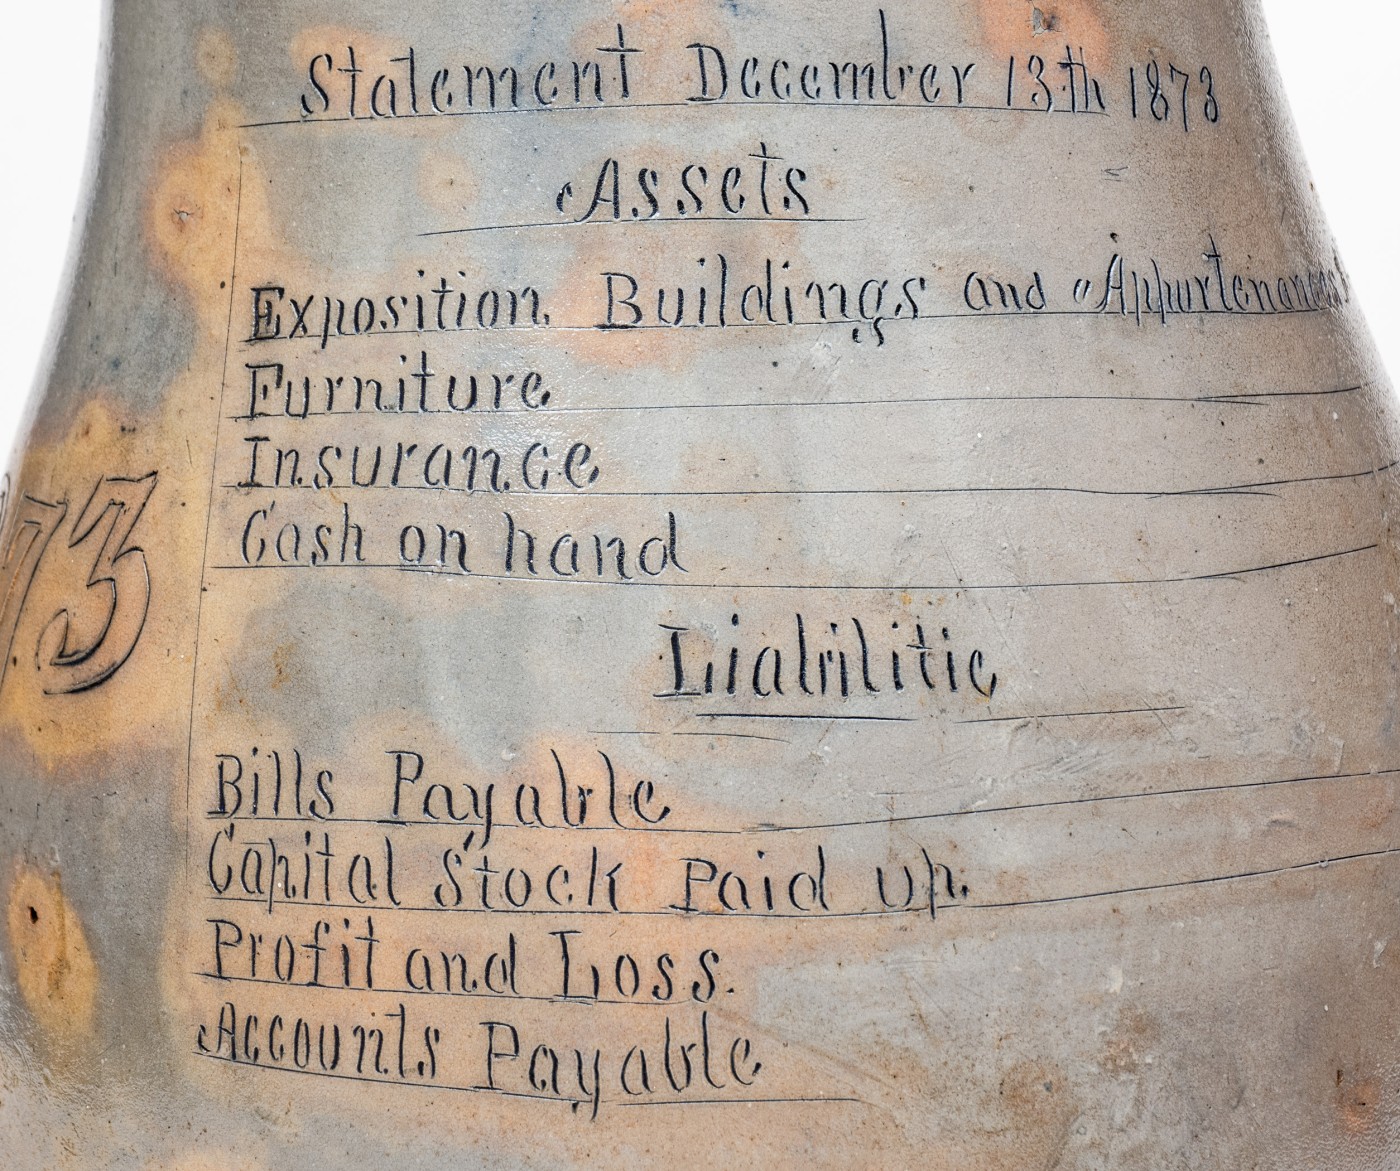 Statement December 13th 1873
Assets
Exposition Buildings and Appurtenances
Furniture
Insurance
Cash on hand
73
Liabilitie
Bills Payable
Capital Stock Paid up.
Profit and Loss.
Accounts Payable